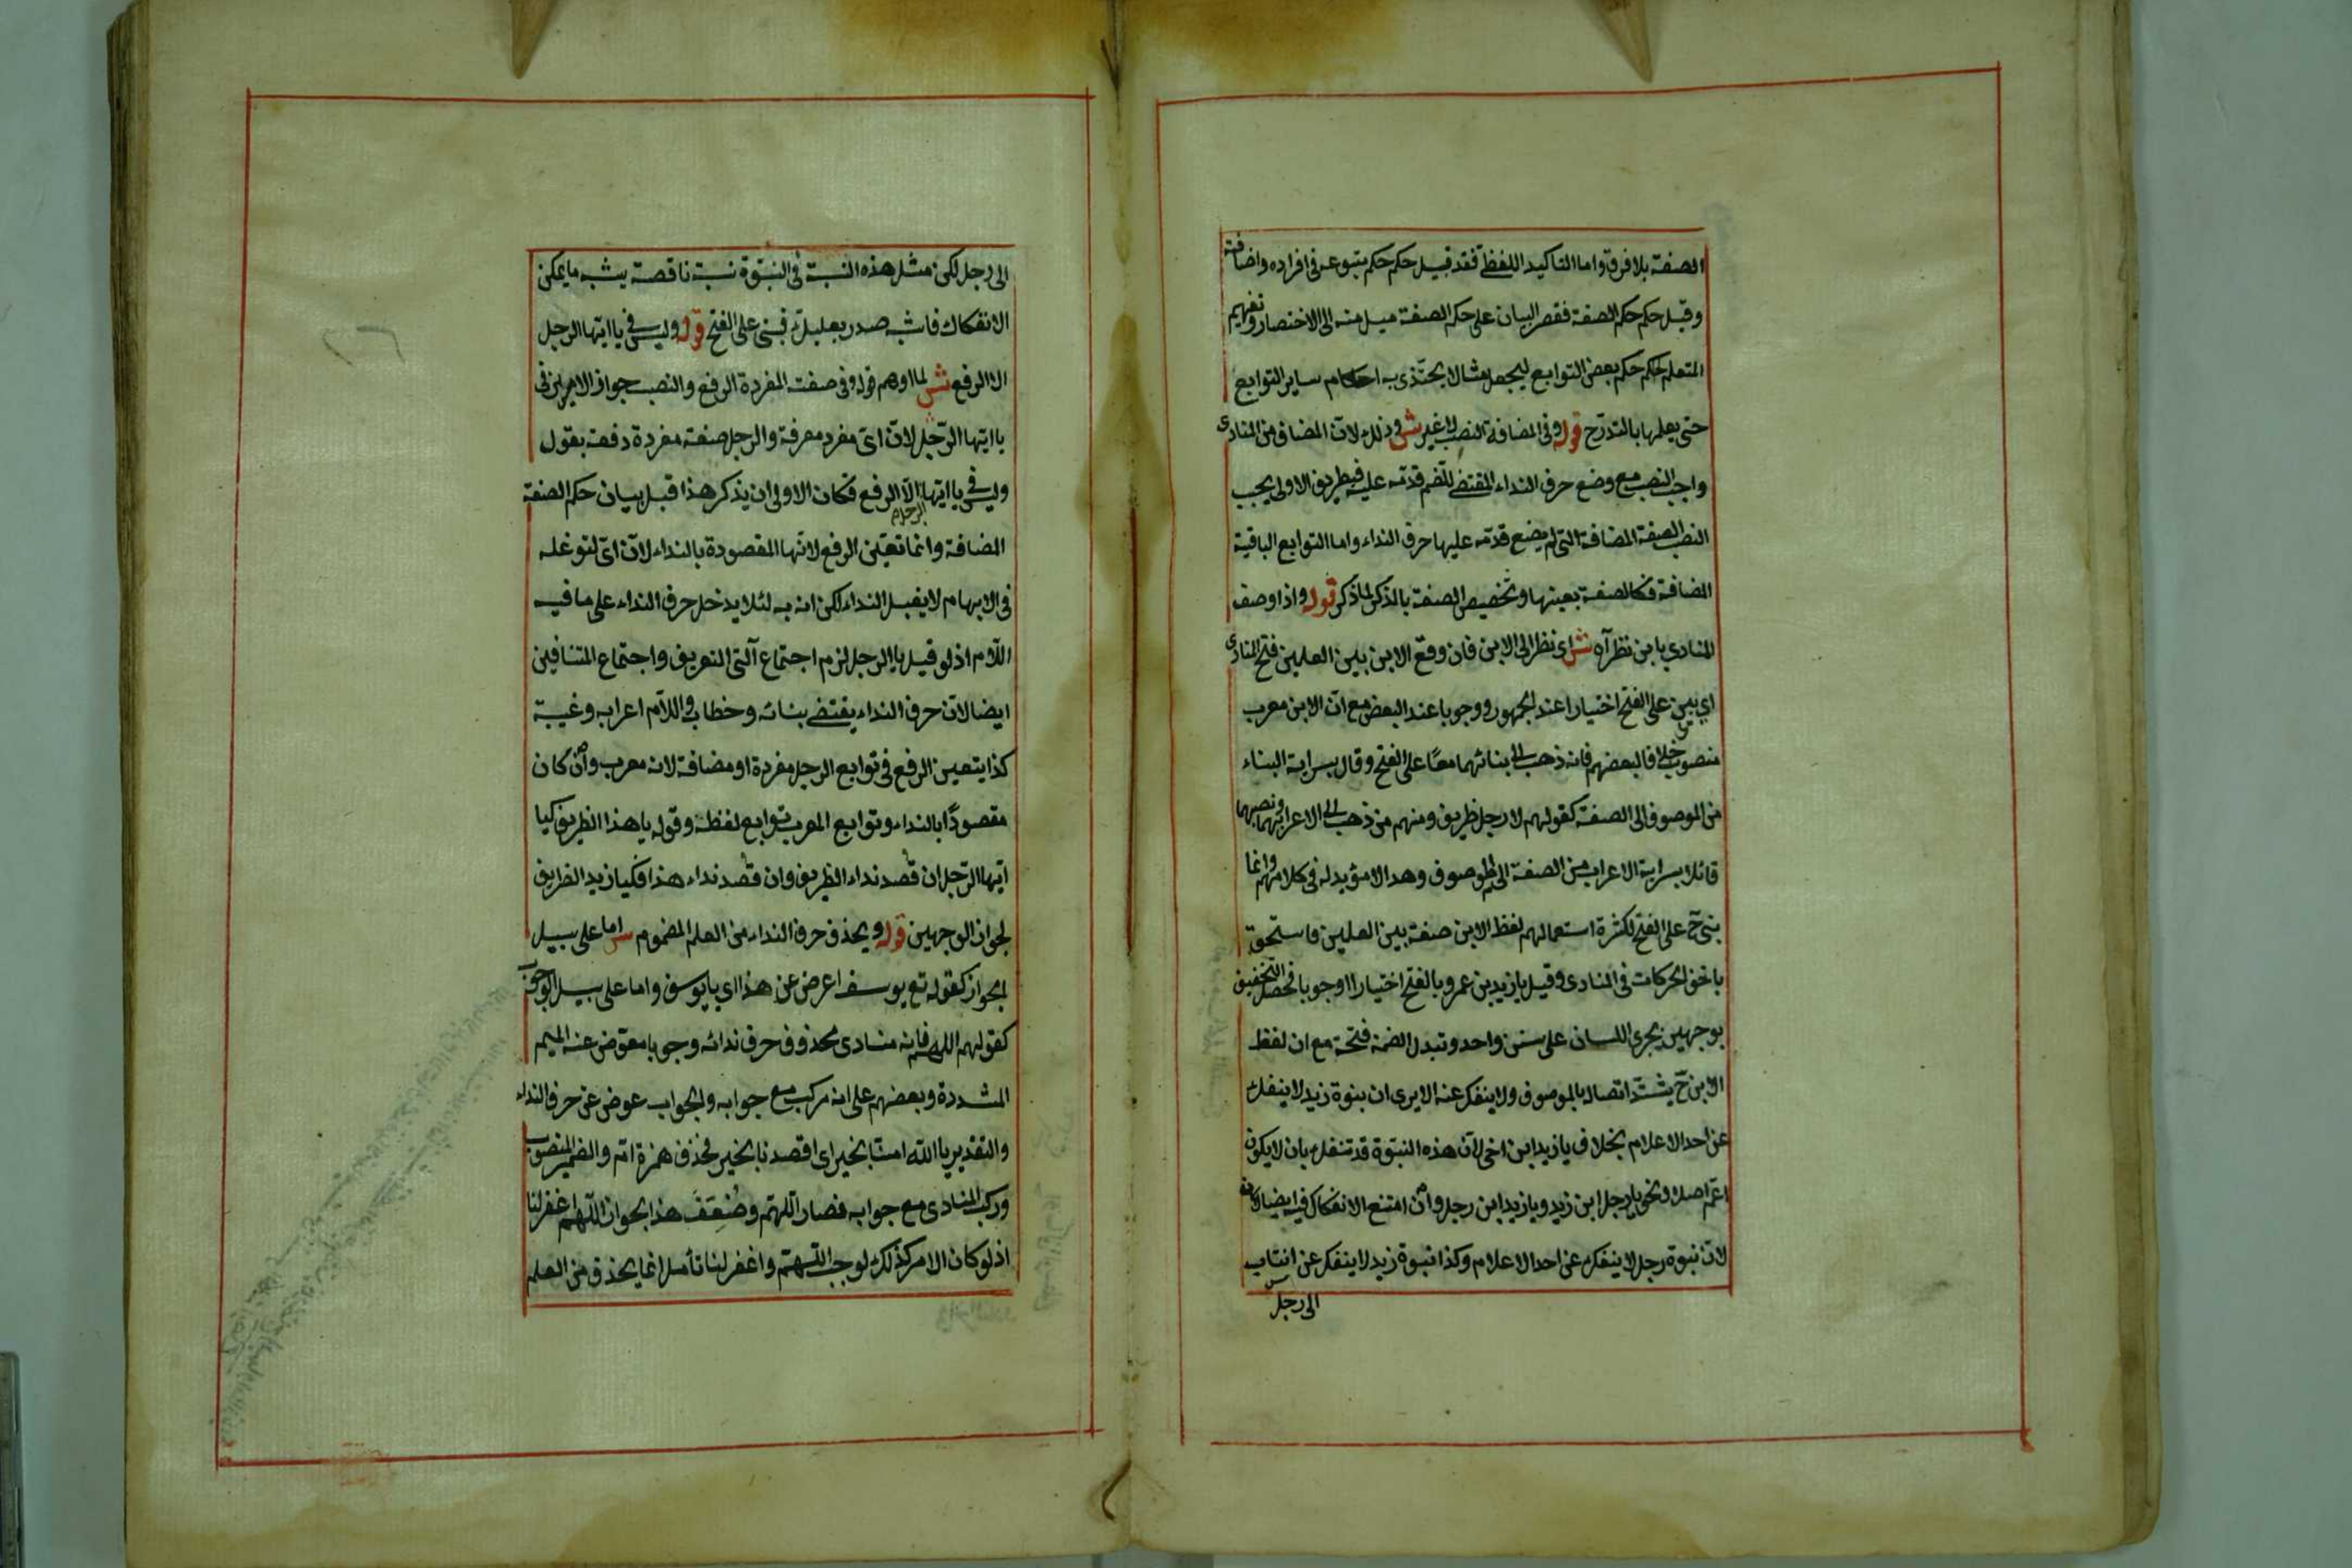 الصفة بلا فرق واما التاكيد اللفظي فقد قيل حكمه حكم متبوعه في افراده واضافته
وقيل حكمه حكم الصفة فقصر البيان على حكم الصفة ميل منه الى الاختصار وتفهيم
المتعلم حكم بعض التوابع ليجعل مثالا يحتذى به احكام ساير التوابع
حتى يعلمها بالتدرج قوله وفى المضافة النصب لا غير ش وذلك لان المضاف من المنادى
واجب النصب مع وضع حرف النداء المقتضي للضم قدامه عليه فبطريق الاولى يجب
النصب لصفة المضافة التى لم يضع قدامه عليها حرف النداء واما التوابع الباقية
المضافة فكالصفة بعينها وتخصيص الصفة بالذكر لما ذكر قوله واذا وصف
المنادى بابن نظر آه ش اى نظر الى الابن فان وقع الابن بين العلمين فتح المنادى
اي يبنى على الفتح اختيارا عند الجمهور ووجوبا عند البعض مع ان الابن معرب
منصوب خلافا لبعضهم فانه ذهب الى بنائهما معًا على الفتح وقال بسراية البناء
من الموصوف الى الصفة كقولهم لا رجل ظريف ومنهم من ذهب الى الاعرابهما ونصبهما
قائلا بسراية الاعراب من الصفة الى الموصوف وهذا لا مؤيد له فى كلامهم وانما
بنى ح على الفتح لكثرة استعمالهم لفظ الابن صفة بين العلمين فاستحق
باخف الحركات فى المنادى وقيل يا زيد بن عمرو بالفتح اختيارا او وجوبا فحصل التخفيف
بوجهين بجرى اللسان على سنن واحد وتبدل الضمة فتحة مع ان لفظ
الابن ح يشتد اتصاله بالموصوف ولا ينفك عنه الا يرى ان بنوة زيد لا ينفك
عن احد الاعلام بخلاف يا زيد ابن اخى لان هذه البنوة قد تنفك بان لا يكون
اخ اصلا ونحو يا رجل ابن زيد ويا زيد ابن رجل وان امتنع الانفكاك فيه ايضا
لان بنوة رجل لا ينفك عن احد الاعلام وكذا بنوة زيد لا ينفك عن انتساب
الى رجل
الى رجل لكن مثل هذه النسبة فى البنوة نسبة ناقصة يشبه ما يمكن
الانفكاك فاشبه صدر بعلبك فبنى على الفتح قوله وليس في يا ايها الرجل
الا الرفع ش لما اوهم قوله وفى صفته المفردة الرفع والنصب جواز الامرين فى
يا ايها الرجل لان اىّ مفرد معرفة والرجل صفته مفردة دفعه بقوله
وليس في يا ايها الرجل الا الرفع فكان الاولى ان يذكر هذا قبل بيان حكم الصفة
المضافة وانما تعين الرفع لانها المقصودة بالنداء لان اىّ لتوغله
فى الابهام لا يقبل النداء لكن اتى به لئلا يدخل حرف النداء على ما فيه
اللام اذ لو قيل يا الرجل لزم اجتماع آلتى التعريف واجتماع المتنافيين
ايضا لان حرف النداء يقتضي بنائه وخطابه واللام اعرابه وغيبة
كذا يتعين الرفع فى توابع الرجل مفردة او مضافة لانه معرب وان كان
مقصودًا بالنداء وتوابع المعرب توابع لفظه وقوله يا هذا الظريف كيا
ايها الرجل ان قصد نداء الظريف وان قصد نداء هذا فكيا زيد الظريف
لجواز الوجهين قوله ويحذف حرف النداء من العلم المضموم ش اما على سبيل
الجواز كقوله تع يوسف اعرض عن هذا اي يا يوسف واما على سبيل الوجوب
كقولهم اللهم فانه منادى محذوف حرف ندائه وجوبا معوض عنه الميم
المشددة وبعضهم على انه مركب مع جوابه والجواب عوض عن حرف النداء
والتقدير يا الله امنا بخير اى اقصدنا بخير فحذف همزة ام والضمير المنصوب
وركب المنادى مع جوابه فصار اللهم وضُعِّفَ هذا بجواز اللهم اغفر لنا
اذ لو كان الامر كذلك لوجب اللهم واغفر لنا تأمل انما يحذف من العلم